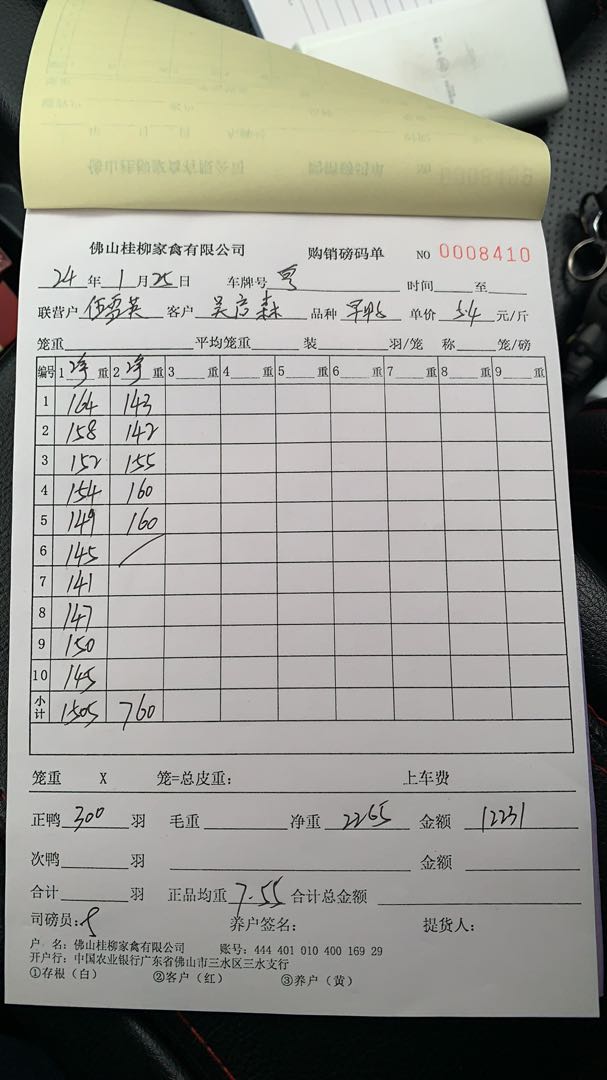 佛山桂柳家禽有限公司 购销磅码单 NO 0008410
24 年 1 月 25 日 车牌号 时间 至
联营户 伍雪英 客户 吴彦森 品种 单价 5.4 元/斤
笼重 平均笼重 装 羽/笼 称 笼/磅
编号 1 净 重 2 净 重 3 重 4 重 5 重 6 重 7 重 8 重 9 重
1 164 143
2 158 142
3 152 155
4 154 160
5 149 160
6 145
7 141
8 147
9 150
10 145
小计 1505 760
笼重 X 笼=总皮重: 上车费
正鸭 300 羽 毛重 净重 2265 金额 12231
次鸭 羽 金额
合计 羽 正品均重 7.55 合计总金额
司磅员: 养户签名: 提货人:
户 名: 佛山桂柳家禽有限公司 账号: 444 401 010 400 169 29
开户行: 中国农业银行广东省佛山市三水区三水支行
①存根（白） ②客户（红） ③养户（黄）